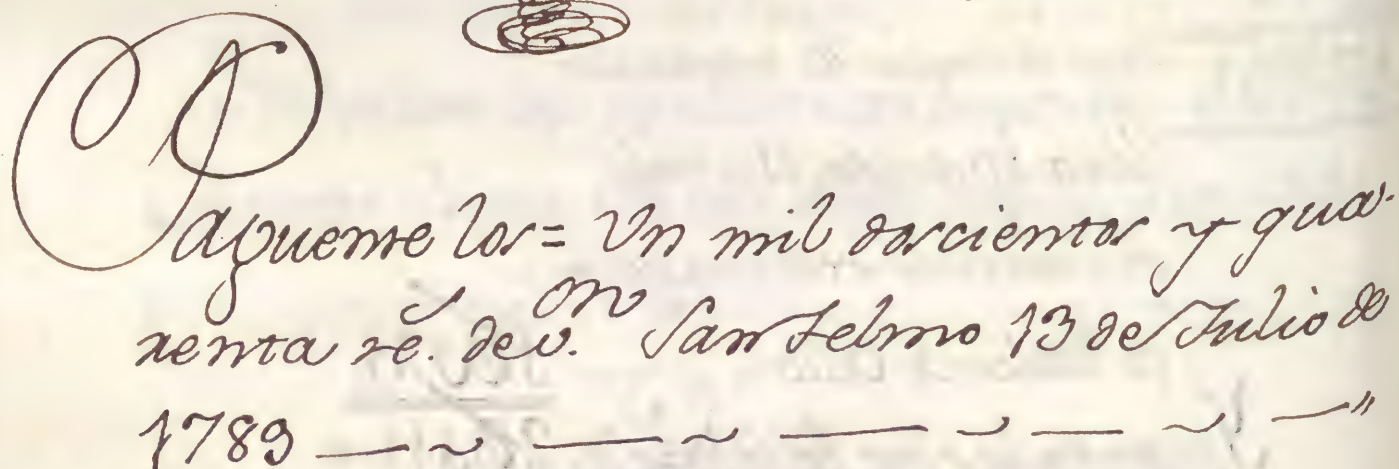 Paguense los = Un mil doscientos y qua-
renta rs. de von. San Telmo 13 de Julio de
1789